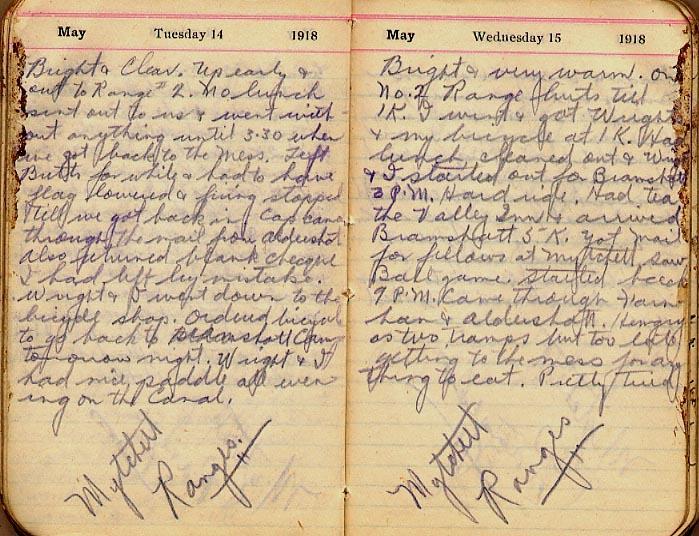 May Tuesday 14 1918
Bright & Clear. Up early &
out to Range # 2. No lunch
sent out to us & went with-
out anything until 3.30 when
we got back to the Mess. Left
Butts for while & had to have
flag lowered & firing stopped
till we got back in. Cap came
through the mail from Aldershot
also returned blank cheque
I had left by mistake.
Wright & I went down to the
bicycle shop. Ordered bicycle
to go back to Bramshott Camp
tomorrow night. Wright & I
had nice paddle all even
ing on the Canal.
Mytchett
Ranges.
May Wednesday 15 1918
Bright & very warm. On
No. 2 Range butts till
1 K. I went & got Wright
& my bicycle at 1 K. Had
lunch, cleaned out & Wright
& I started out for Bramshott
3 P.M. Hard ride. Had tea
the Valley Inn & arrived
Bramshott 5 K. Got mail
for fellows at Mytchett, saw
Ball game. started back
9 P.M. Came through Farn
ham & Aldershot. Hungry
as two tramps but too late
getting to the mess for any
thing to eat. Pretty tired
Mytchett
Ranges